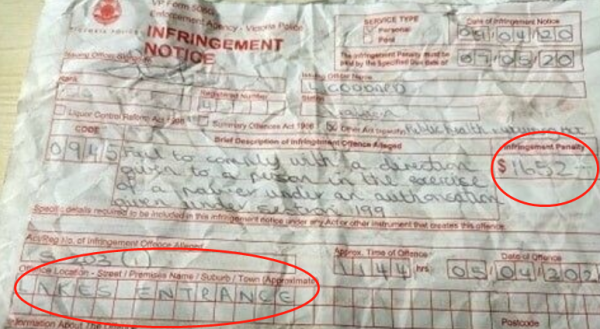 VP Form 306A
Enforcement Agency - Victoria Police
VICTORIA POLICE
INFRINGEMENT
NOTICE
SERVICE TYPE
Personal
Post
Date of Infringement Notice
05 04 20
The Infringement Penalty must be
paid by the Specified Due date of
07 05 20
Issuing Officer
Issuing Officer Name
GODDARD
Rank
Registered Number
Station
Liquor Control Reform Act 1998
Summary Offences Act 1966
Other Act (specify)
CODE
Brief Description of Infringement Offence Alleged
Infringement Penalty
0945
Fail to comply with a direction
given to a person in the exercise
of a power under an authorisation
given under section 199
$1652
Specific details required to be included in this infringement notice under any Act or other instrument that creates this offence
Act/Reg No. of Infringement Offence Alleged
S 203 (1)
Approx. Time of Offence
1144 hrs
Date of Offence
05 04 202
Offence Location - Street / Premises Name / Suburb / Town (Approximate
LAKES ENTRANCE
Postcode
Information About The